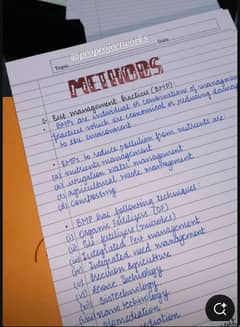 @proprojectworks
Topic
Date
METHODS
1- Best management Practices (BMP)
• BMPs are individual or combinations of management
practices which are economical in reducing damage
to the environment
• BMPs to reduce pollution from nutrients are
(a) nutrients management
(b) irrigation water management
(c) agricultural waste management
(d) Composting
• BMP has following techniques:
(i) Organic Fertilizers
(ii) Bio-fertilizers (microbes)
(iii) Integrated Pest management
(iv) Integrated weed management
(v) Precision Agriculture
(vi) Technology
(vii) Biotechnology
(viii) Nano technology